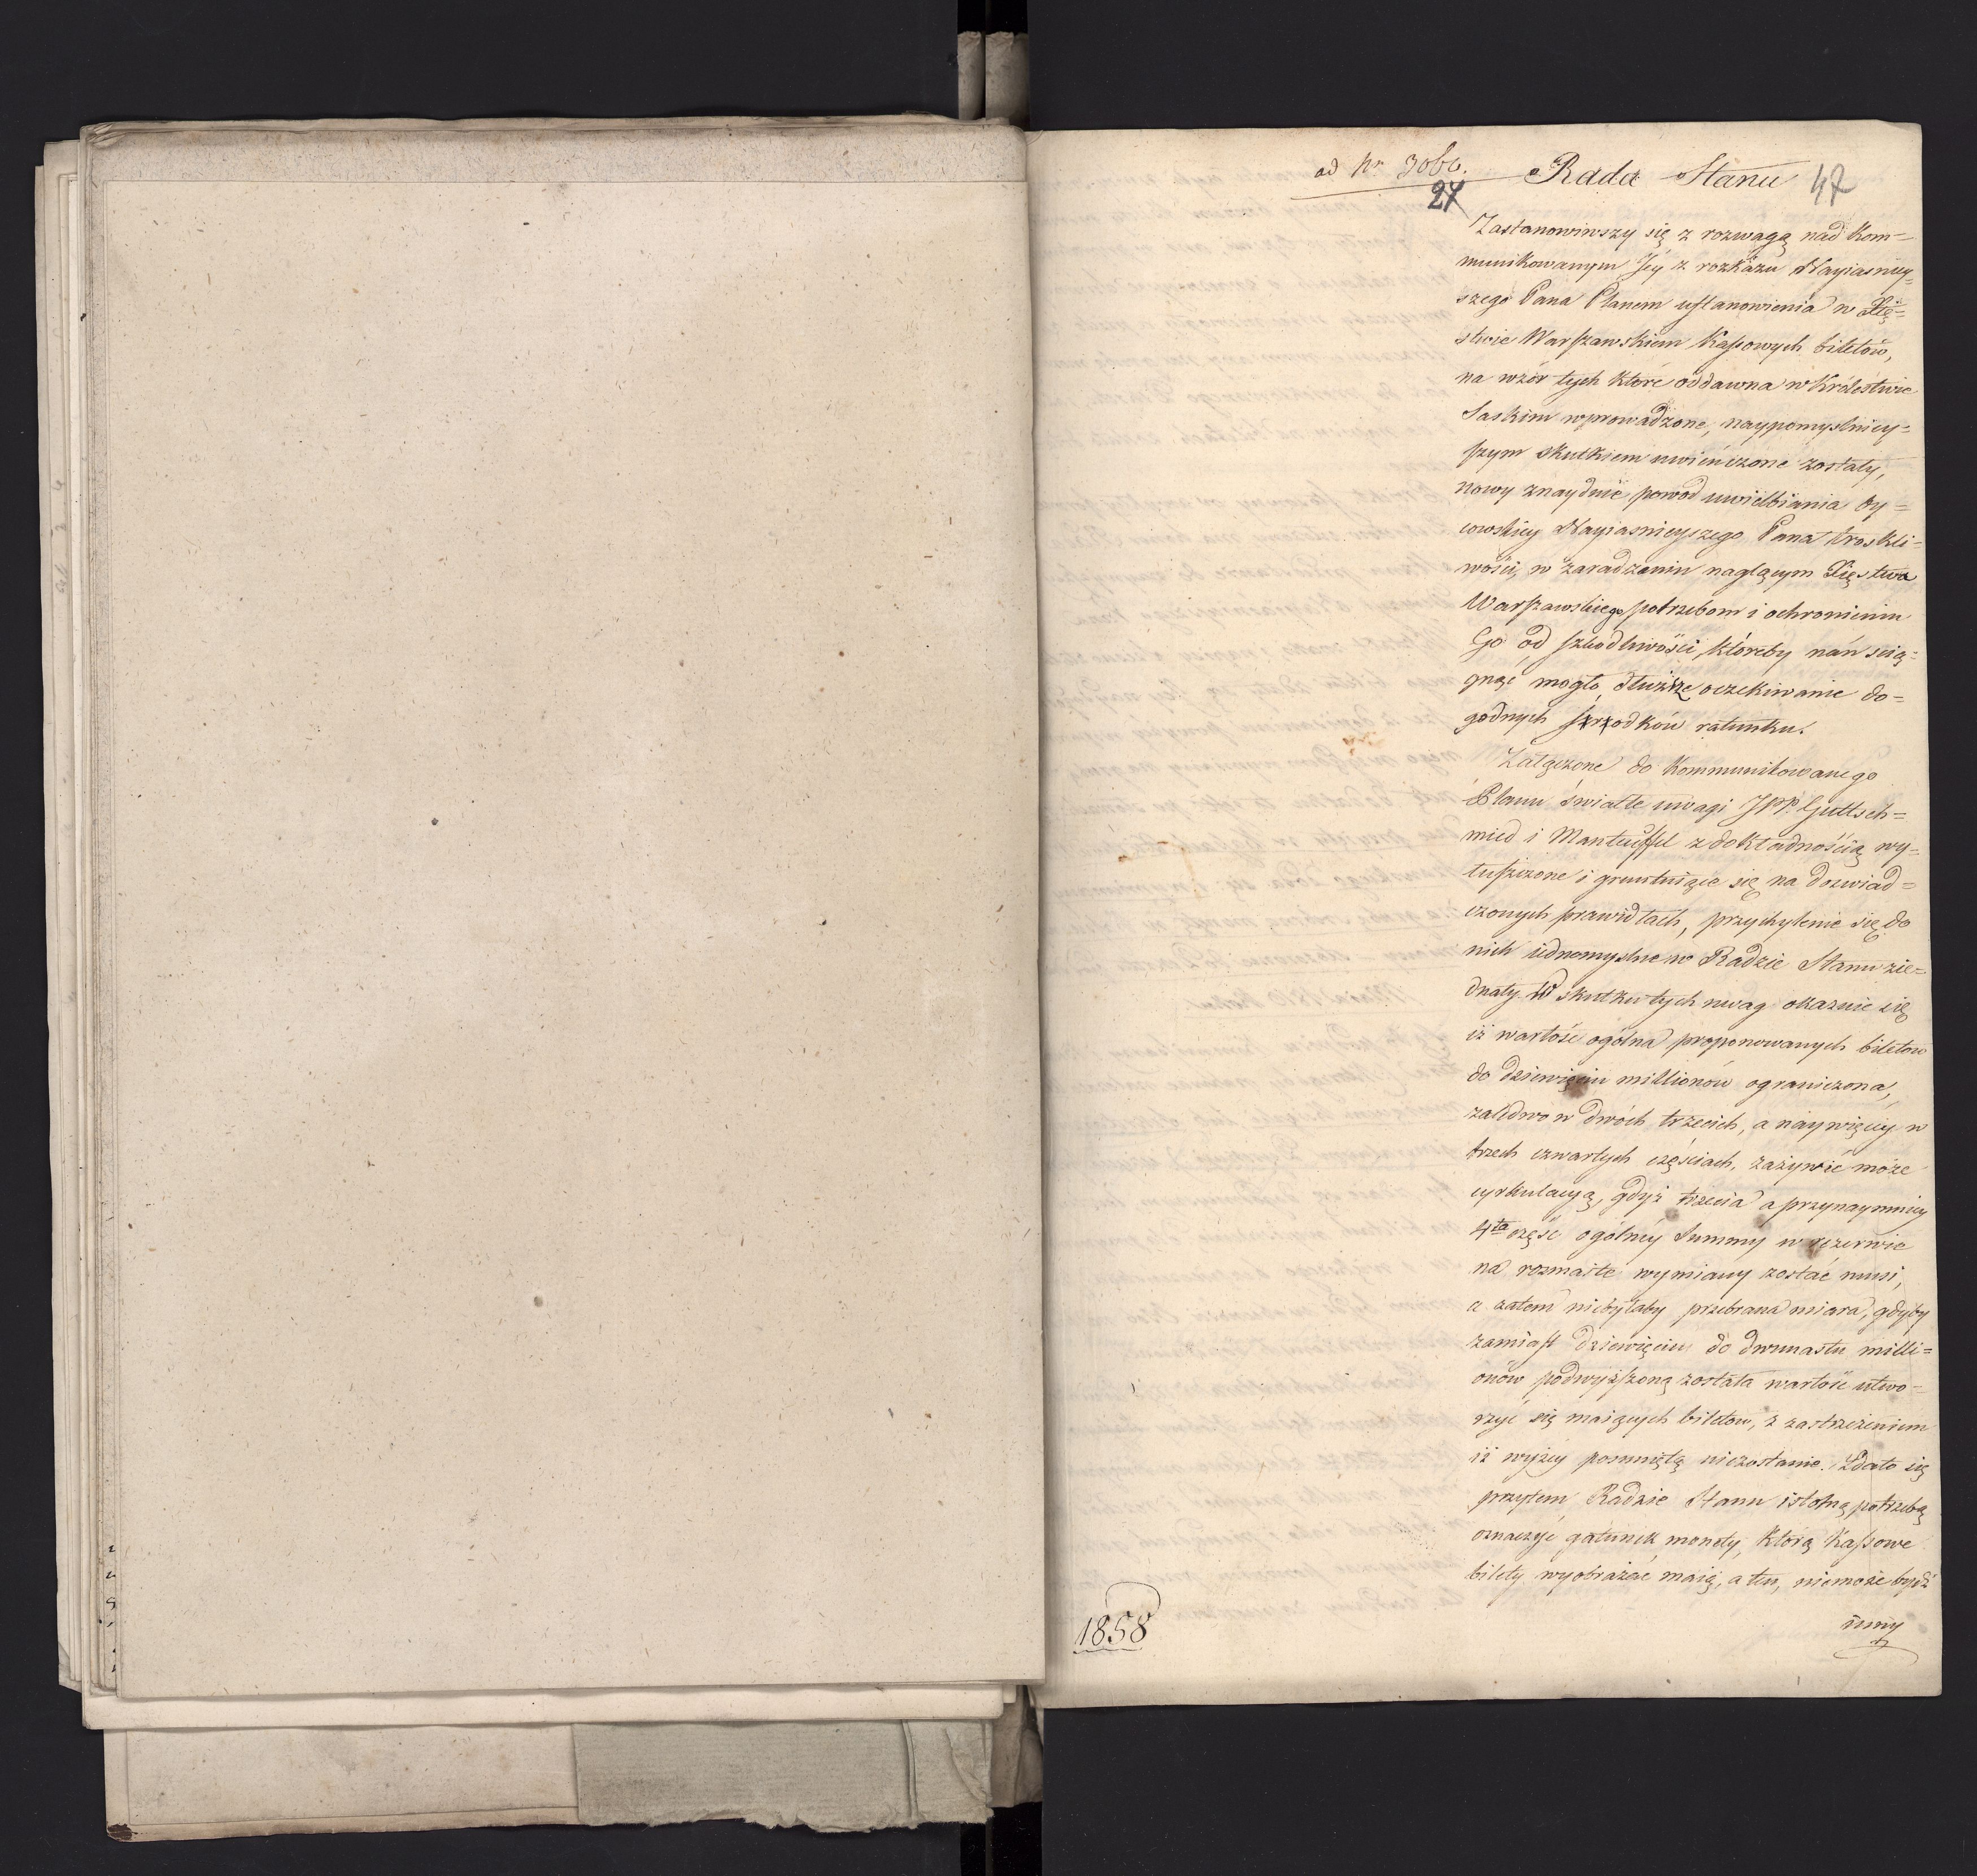 ad Nr 3060.
27
Rada Stanu 47
Zastanowiwszy się z rozwagą nad kom=
munikowanym Jey z rozkazu Nayiasniey=
szego Pana Planem ustanowienia w Xię=
stwie Warszawskiem Kassowych biletów,
na wzór tych które oddawna w Królestwie
Saskim wprowadzone, naypomyslniey=
szym skutkiem uwieńczone zostały,
nowy znayduie powod uwielbiania Oy=
cowskiey Nayiasnieyszego Pana troskli=
wości, w zaradzeniu naglącym Xięstwa
Warszawskiego potrzebom i ochronieniu
Go od szkodliwości, któreby nań ścią=
gnąć mogło, dłuższe oczekiwanie do=
godnych srzodków ratunku.
Załączone do kommunikowanego
Planu światłe uwagi JPP. Guttsch=
mied i Manteuffel z dokładnością wy=
łuszczone i gruntuiące się na doswiad=
czonych prawidłach, przychylenie się do
nich iednomyslne w Radzie Stanu zie=
dnały. W skutku tych uwag okazuie się
iż wartość ogólna proponowanych biletow
do dziewięciu millionów ograniczona,
zaledwo w dwóch trzecich, a naywięcey w
trzech czwartych częściach, zażywić może
cyrkulacyą, gdyż trzecia a przynaymniey
4ta część ogólney Summy w rezerwie
na rozmaite wymiany zostać musi,
a zatem niebyłaby przebrana miara, gdyby
zamiast dziewięciu do dwunastu milli=
onów podwyższoną została wartość utwo=
rzyć się maiących biletow, z zastrzeżeniem
iż wyżey pomkniętą niezostanie. Zdało się
przytem Radzie Stanu istotną potrzebą
oznaczyć gatunek monety, którą Kassowe
bilety wyobrażać maią, a ten, niemoże bydź
inny
1858